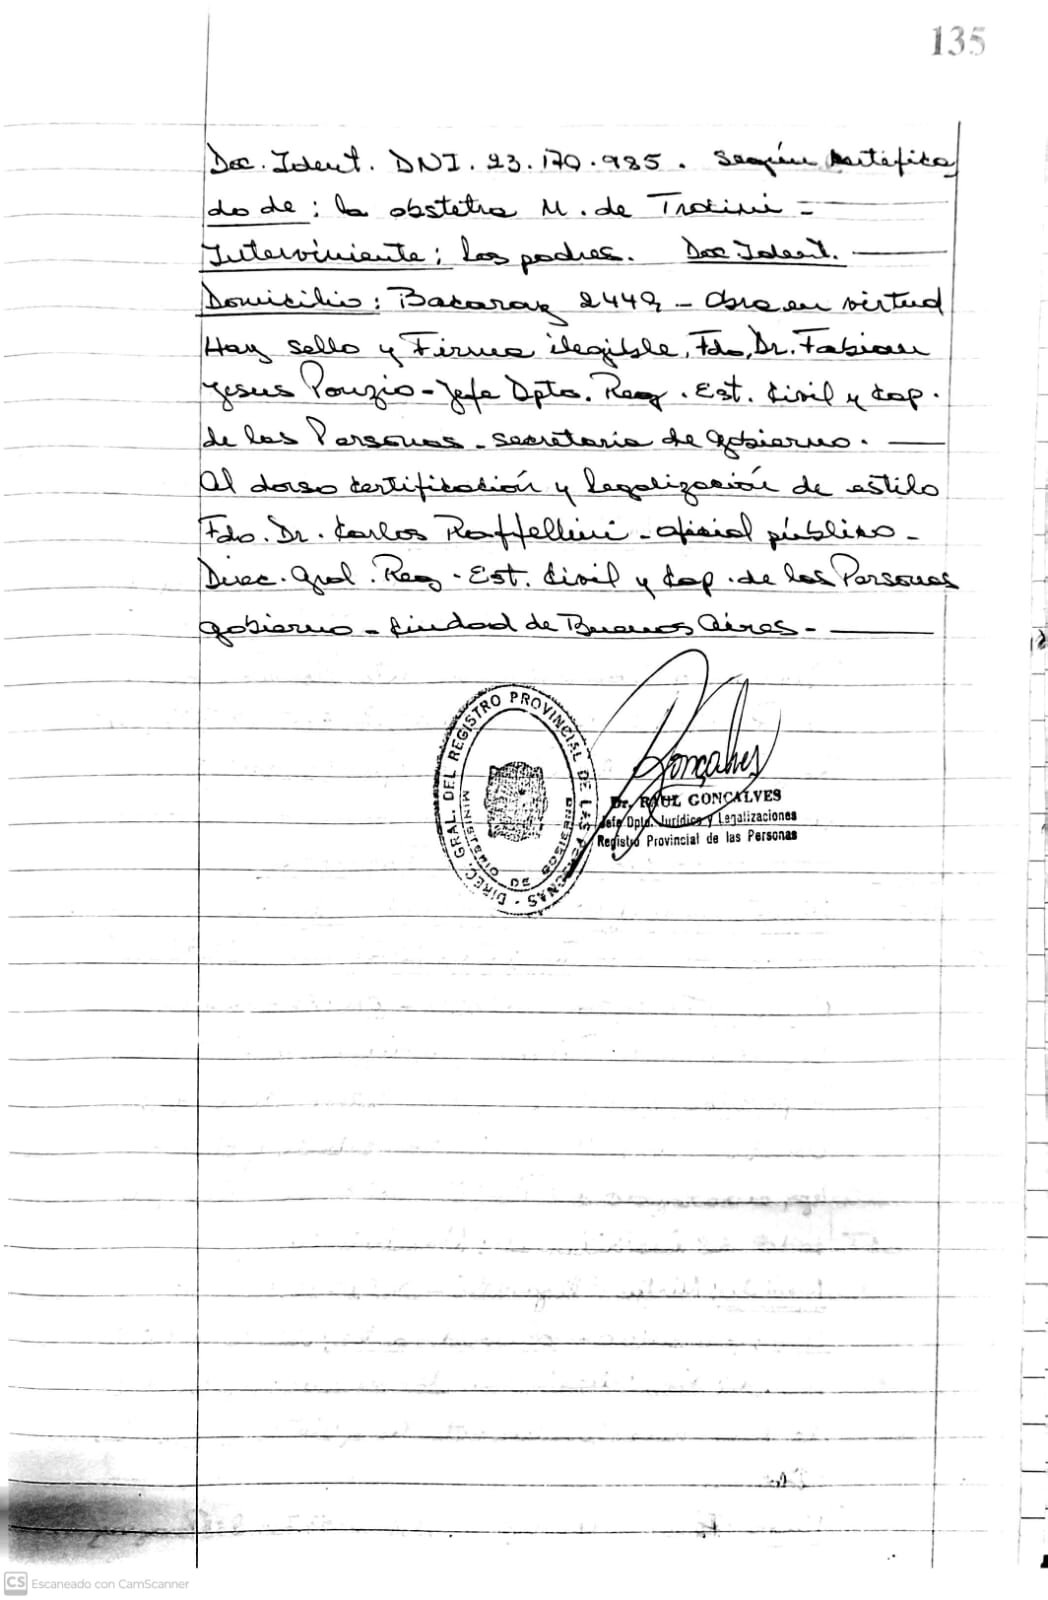 135
Doc. Ident. DNI. 23.170.985. Según certifica
do de: la obstetra M. de
Interviniente: Los padres. Doc. Ident.
Domicilio: Bacaray 2449 - Obra en virtud
Hay sello y Firma ilegible, Fdo, Dr. Fabian
Jesus Ponzio - Jefe Dpto. Reg. Est. Civil y Cap.
de las Personas - secretaria de gobierno.
Al dorso certificación y legalización de estilo
Fdo. Dr. Carlos Raffellini - oficial público -
Direc. Gral. Reg. Est. Civil y Cap. de las Personas
gobierno - Ciudad de Buenos Aires -
DIREC. GRAL. DEL REGISTRO PROVINCIAL DE LAS PERSONAS
MINISTERIO DE GOBIERNO
Gonçalves
Dr. RAUL GONCALVES
Jefe Dpto. Jurídico y Legalizaciones
Registro Provincial de las Personas
CS Escaneado con CamScanner